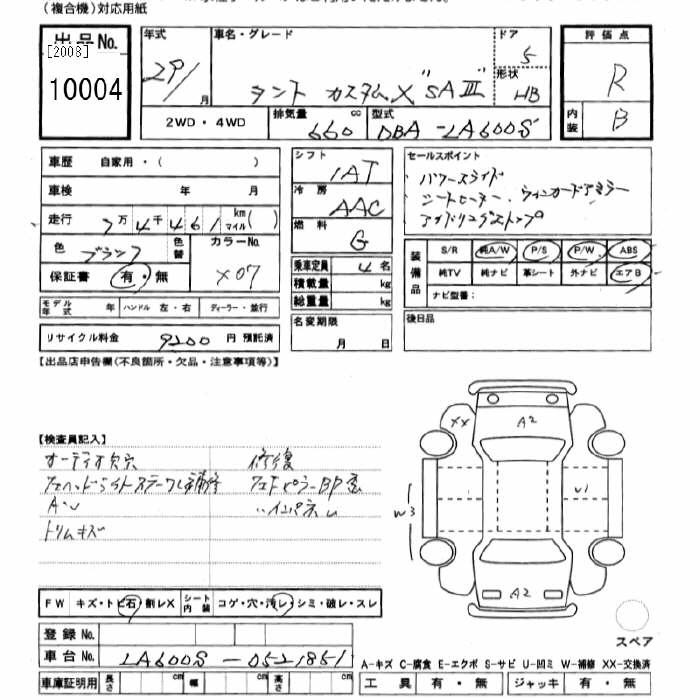 (複合機)対応用紙
出品No.
[2008]
10004
年式
29/
月
車名・グレード
タント カスタム X "SAⅢ"
ドア
5
形状
HB
評価点
R
内装
B
2WD・4WD
排気量
660
cc
型式
DBA-LA600S
車歴 自家用・( )
車検 年 月
走行 7万4千461 km マイル( )
色 ブラック 色替
カラーNo.
X07
保証書 有・無
モデル年式 年 ハンドル 左・右 ディーラー・並行
リサイクル料金 9200 円 預託済
シフト
IAT
冷房
AAC
燃料
G
乗車定員 4 名
積載量 kg
総重量 kg
名変期限
月 日
セールスポイント
パワースライド
シートヒーター ウィンカードアミラー
アイドリングストップ
装備品
S/R 純A/W P/S P/W ABS
純TV 純ナビ 革シート 外ナビ エアB
ナビ型番:
後日品
【出品店申告欄(不良箇所・欠品・注意事項等)】
【検査員記入】
オーディオ欠
A・U
トリムキズ
修復
XX
A2
W3
U1
A2
スペア
FW キズ・トビ石・割レX シート内装 コゲ・穴・汚レ・シミ・破レ・スレ
登録No.
車台No. LA600S-0521851
車庫証明用 長さ cm 幅 cm 高さ cm
A-キズ C-腐食 E-エクボ S-サビ U-凹ミ W-補修 XX-交換済
工具 有・無 ジャッキ 有・無